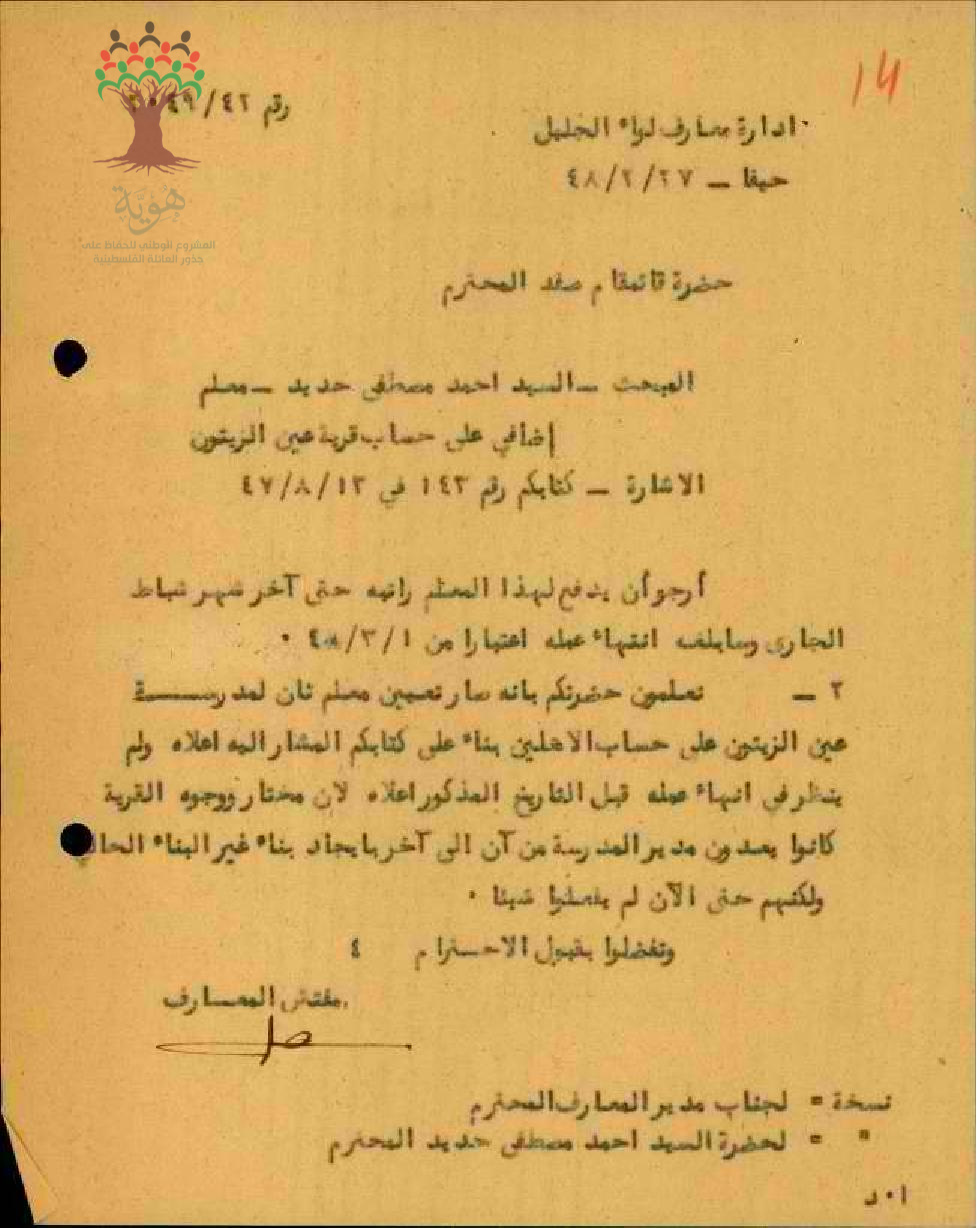 14
رقم ٤٢/
ادارة معارف لواء الجليل
حيفا ــ ٤٨/٢/٢٧
هُويَّة
المشروع الوطني للحفاظ على
جذور العائلة الفلسطينية
حضرة قائمقام صفد المحترم
المبحث ــ السيد احمد مصطفى حديد ــ معلم
إضافي على حساب قرية عين الزيتون
الاشارة ــ كتابكم رقم ١٤٣ في ٤٧/٨/١٣
أرجو أن يدفع لهذا المعلم راتبه حتى آخر شهر شباط
الجارى وسابلغه انتهاء عمله اعتبارا من ٤٨/٣/١ ٠
٢ ــ تعلمون حضرتكم بانه صار تعيين معلم ثان لمدرســــة
عين الزيتون على حساب الاهلين بناء على كتابكم المشار اليه اعلاه ولم
ينظر في انهاء عمله قبل التاريخ المذكور اعلاه لان مختار ووجوه القرية
كانوا يعدون مدير المدرسة من آن الى آخر بايجاد بناء غير البناء الحالي
ولكنهم حتى الآن لم يفعلوا شيئا ٠
وتفضلوا بقبول الاحترام ٤
مفتش المعارف
نسخة = لجناب مدير المعارف المحترم
" = لحضرة السيد احمد مصطفى حديد المحترم
ا٠د